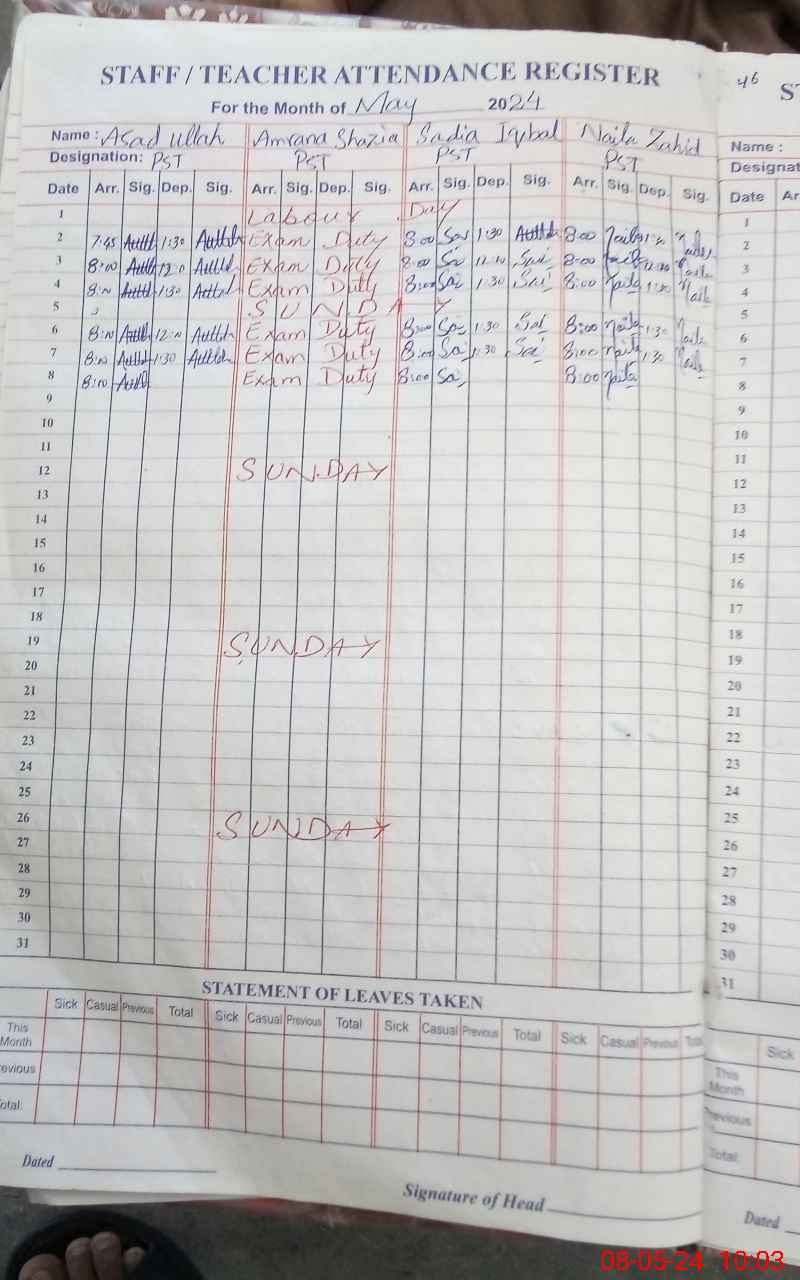 STAFF / TEACHER ATTENDANCE REGISTER
For the Month of May 2024
46
Name : Asad ullah Amrana Shazia Sadia Iqbal Naila Zahid
Designation: PST PST PST PST
Name :
Date Arr. Sig. Dep. Sig. Arr. Sig. Dep. Sig. Arr. Sig. Dep. Sig. Arr. Sig. Dep. Sig.
Date
1 Labour Day
2 7:45 1:30 Exam Duty 8:00 1:30 8:00 Naila 1:30
3 8:00 Exam Duty 8:00 8:00
4 8:00 1:30 Exam Duty 8:00 1:30 8:00 Naila 1:30
5 SUNDAY
6 8:00 12:00 Exam Duty 8:00 1:30 8:00 Naila 1:30
7 8:00 1:30 Exam Duty 8:00 1:30 8:00 Naila 1:30
8 8:00 Exam Duty 8:00 8:00 Naila
9
10
11
12 SUNDAY
13
14
15
16
17
18
19 SUNDAY
20
21
22
23
24
25
26 SUNDAY
27
28
29
30
31
1
2
3
4
5
6
7
8
9
10
11
12
13
14
15
16
17
18
19
20
21
22
23
24
25
26
27
28
29
30
31
STATEMENT OF LEAVES TAKEN
Sick Casual Previous Total Sick Casual Previous Total Sick Casual Previous Total Sick Casual Previous
This Month
Total
Dated
Signature of Head
Sick
This Month
Previous
Total
Dated
08-05-24 10:03